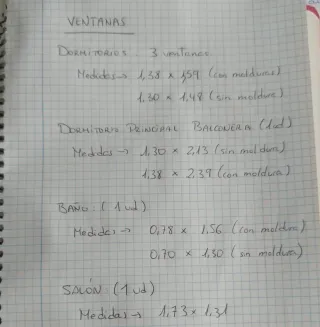 VENTANAS
DORMITORIOS: 3 ventanas
Medidas → 1,38 x 1,59 (con moldura)
1,30 x 1,48 (sin moldura)
DORMITORIO PRINCIPAL BALCONERA (1ud)
Medidas → 1,30 x 2,13 (sin moldura)
1,38 x 2,39 (con moldura)
BAÑO: (1ud)
Medidas → 0,78 x 1,56 (con moldura)
0,70 x 1,30 (sin moldura)
SALÓN: (1ud)
Medidas → 1,73 x 1,31